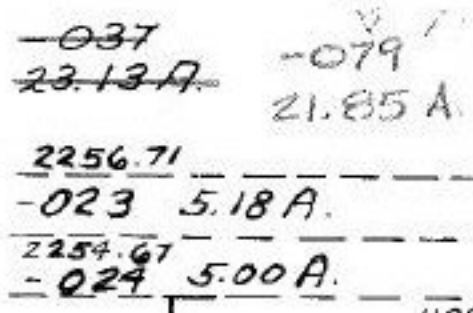 -037
23.13 A.
-079
21.85 A.
2256.71
-023 5.18 A.
2254.67
-024 5.00 A.